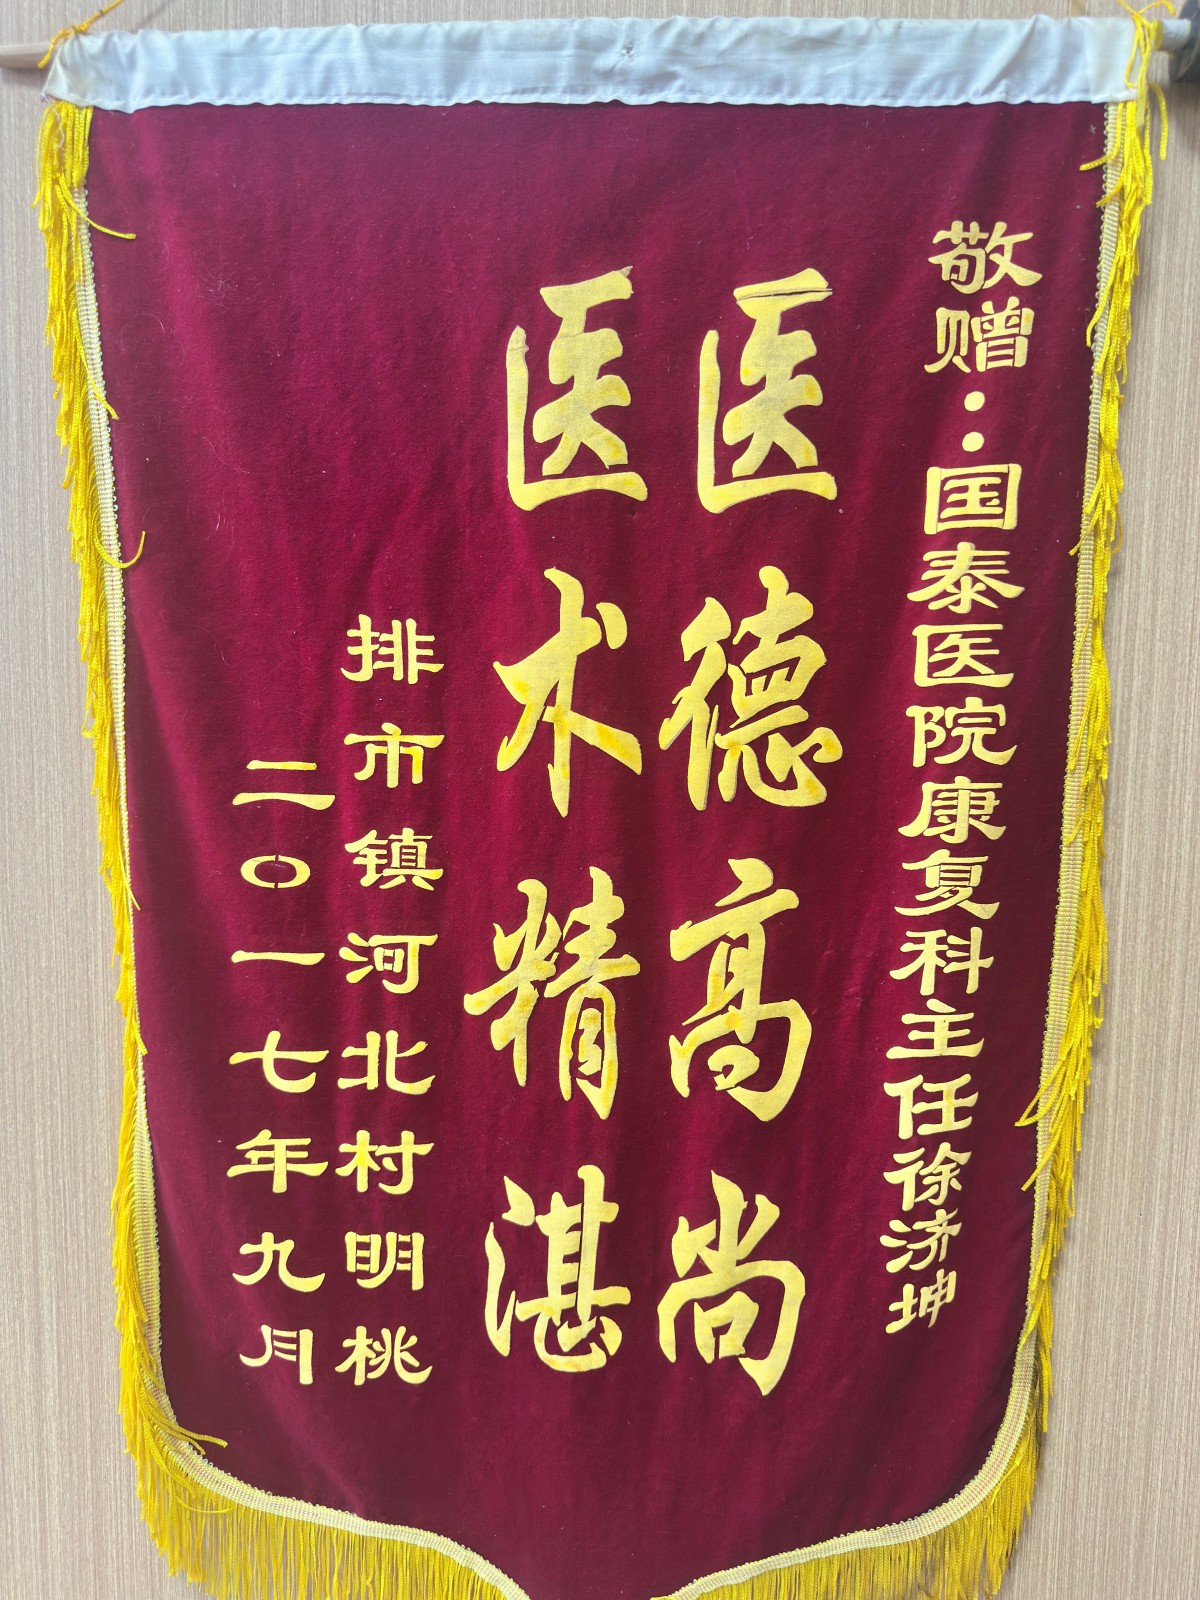 敬赠：国泰医院康复科主任徐济坤
医德高尚
医术精湛
排市镇河北村明桃
二〇一七年九月